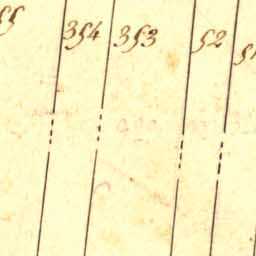 55
354
353
52